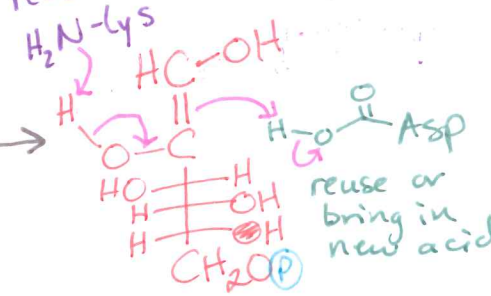 H₂N-Lys
HC-OH
H
O-C
H-O
O
Asp
HO H
H OH
H H
CH₂OP
reuse or
bring in
new acid